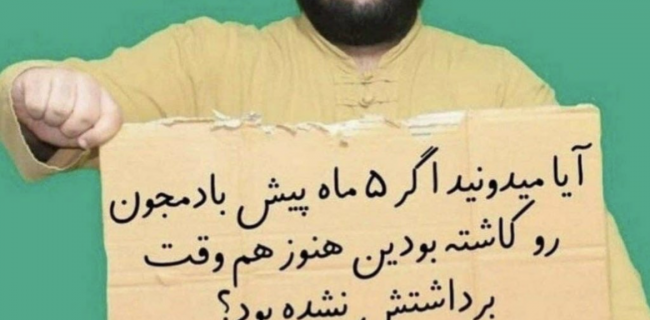 آیا میدونید اگر ۵ ماه پیش بادمجون
رو کاشته بودین هنوز هم وقت
برداشتش نشده بود؟